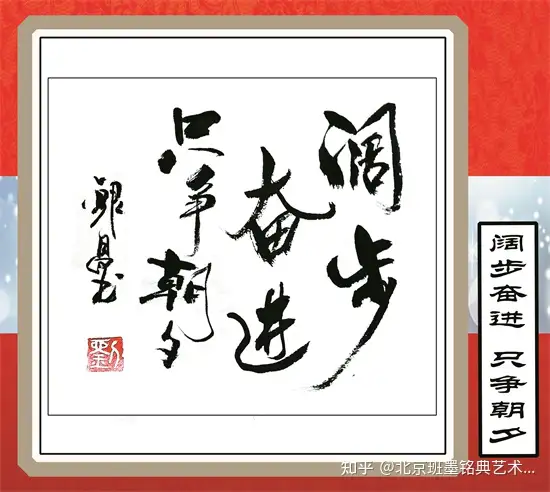 阔步
奋进
只争朝夕
劉
阔步奋进 只争朝夕
知乎 @北京班墨铭典艺术...